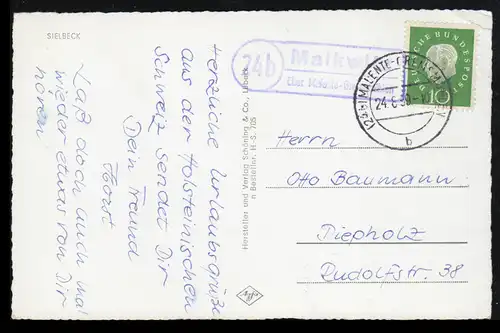 SIELBECK
Herzliche Urlaubsgrüße
aus der Holsteinischen
Schweiz sendet Dir
Dein Freund
Horst
Laß doch auch mal
wieder etwas von Dir
hören
Hersteller und Verlag Schöning & Co., Lübeck
Bestellnr. H.-S. 705
24b
Malkwitz
über Malente-
(24b) MALENTE-
24.6.
b
DEUTSCHE BUNDESPOST
10
Herrn
Otto Baumann
Diepholz
Rudolfstr. 38